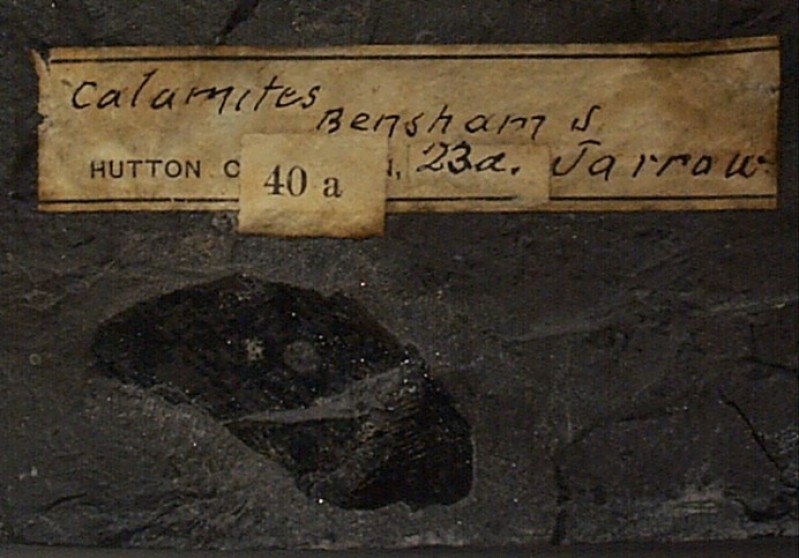 Calamites
Bensham S
HUTTON C 40 a , 23a. Jarrow